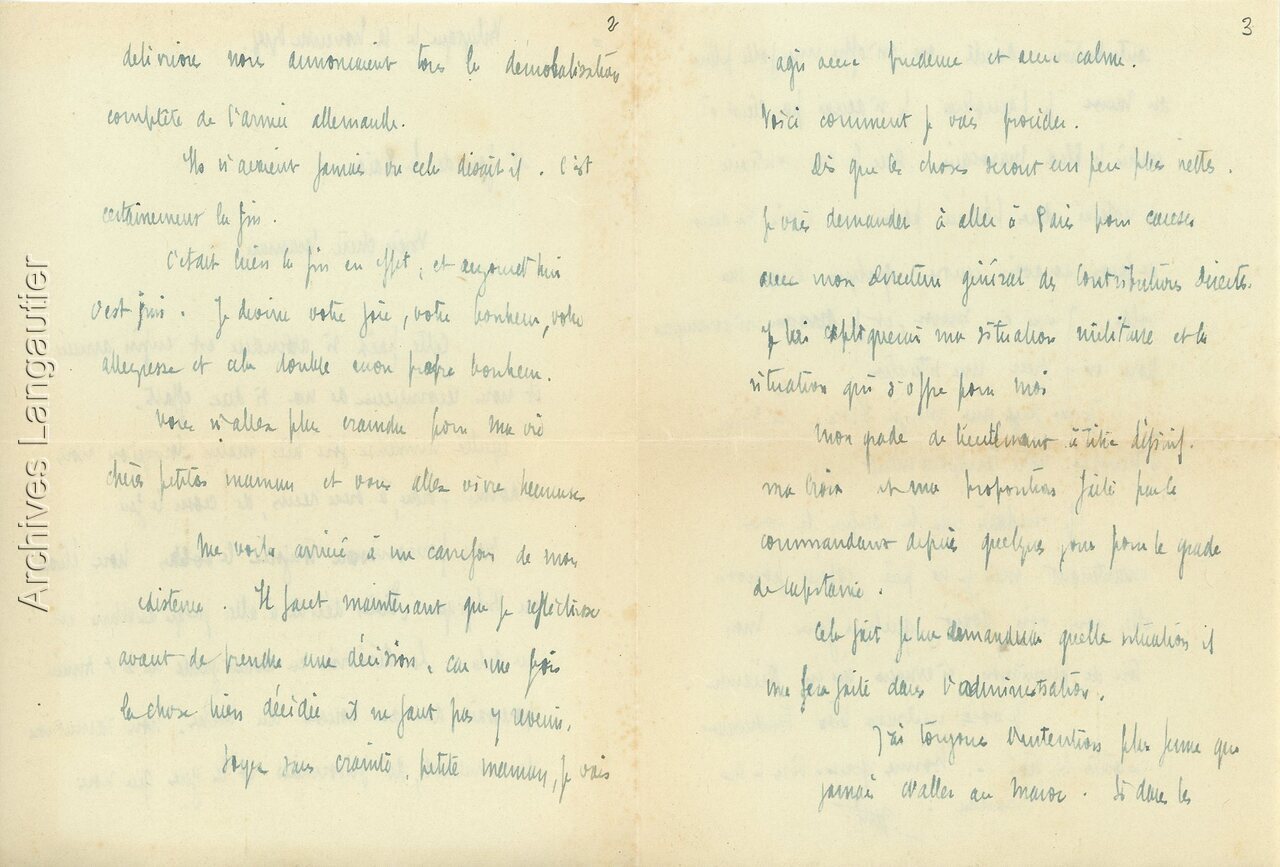 2
délivrions nous annonçaient tous la démobilisation
complète de l'armée allemande.
Ils n'avaient jamais vu cela disait il. C'est
certainement la fin.
C'était bien la fin en effet, et aujourd'hui
c'est fini. Je devine votre joie, votre bonheur, votre
allegresse et cela double mon propre bonheur.
Vous n'allez plus craindre pour ma vie
chères petites maman et vous allez vivre heureuses
Me voila arrivé à un carrefour de mon
existence. Il faut maintenant que je réfléchisse
avant de prendre une décision, car une fois
la chose bien décidée il ne faut pas y revenir.
Soyez sans crainte, petite maman, je vais
3
agir avec prudence et avec calme.
Voici comment je vais procéder.
Dès que les choses seront un peu plus nettes.
Je vais demander à aller à Paris pour causer
avec mon Directeur général des Contributions Directes.
Je lui expliquerai ma situation militaire et la
situation qui s'offre pour moi
Mon grade de lieutenant à titre définitif.
ma Croix et ma proposition faite par le
commandant depuis quelques jours pour le grade
de capitaine.
Cela fait je lui demanderai quelle situation il
me sera faite dans l'administration.
J'ai toujours l'intention plus ferme que
jamais d'aller au Maroc. Si dans les
Archives Langautier